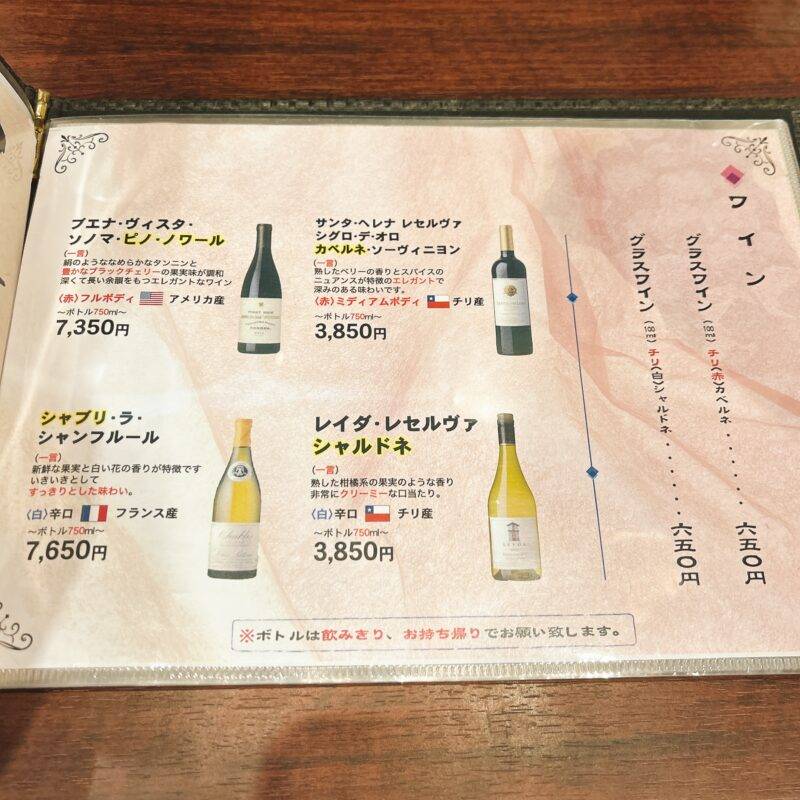 ワイン
グラスワイン(180㎖) チリ(赤)カベルネ・・・・・・六五〇円
グラスワイン(180㎖) チリ(白)シャルドネ・・・・・・六五〇円
ブエナ・ヴィスタ・
ソノマ・ピノ・ノワール
(一言)
絹のようななめらかなタンニンと
豊かなブラックチェリーの果実味が調和
深くて長い余韻をもつエレガントなワイン
〈赤〉フルボディ アメリカ産
〜ボトル750ml〜
7,350円
サンタ・ヘレナ レセルヴァ
シグロ・デ・オロ
カベルネ・ソーヴィニヨン
(一言)
熟したベリーの香りとスパイスの
ニュアンスが特徴のエレガントで
深みのある味わいです。
〈赤〉ミディアムボディ チリ産
〜ボトル750ml〜
3,850円
シャブリ・ラ・
シャンフルール
(一言)
新鮮な果実と白い花の香りが特徴です
いきいきとして
すっきりとした味わい。
〈白〉辛口 フランス産
〜ボトル750ml〜
7,650円
レイダ・レセルヴァ
シャルドネ
(一言)
熟した柑橘系の果実のような香り
非常にクリーミーな口当たり。
〈白〉辛口 チリ産
〜ボトル750ml〜
3,850円
※ボトルは飲みきり、お持ち帰りでお願い致します。